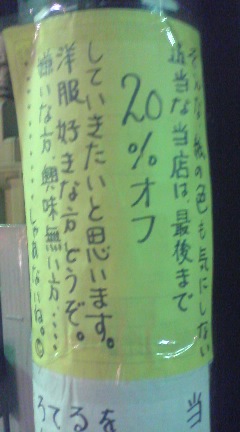 そんな紙の色も気にしない
適当な当店は、最後まで
20%オフ
していきたいと思います。
洋服好きな方どうぞ。
嫌いな方、興味無い方……
……………しゃあないね。
当
を
る
て
ろ